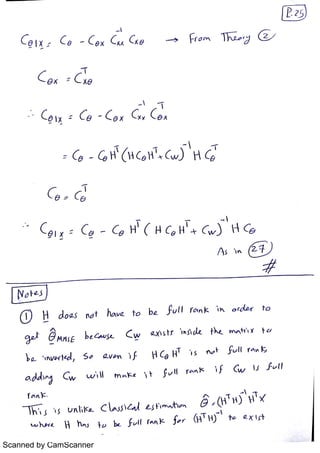 P.25
C_{θ|x} = C_θ - C_{θx} C_{xx}^{-1} C_{xθ} → From Theory ②
C_{θx} = C_{xθ}^T
∴ C_{θ|x} = C_θ - C_{θx} C_{xx}^{-1} C_{θx}^T
= C_θ - C_θ H^T (H C_θ H^T + C_w)^{-1} H C_θ^T
C_θ = C_θ^T
∴ C_{θ|x} = C_θ - C_θ H^T (H C_θ H^T + C_w)^{-1} H C_θ
As in (27)
#
Notes
① H does not have to be full rank in order to
get θ̂_{MMSE} because C_w exists inside the matrix to
be inverted, so even if H C_θ H^T is not full rank
adding C_w will make it full rank if C_w is full
rank.
This is unlike Classical estimation θ̂ = (H^T H)^{-1} H^T x
where H has to be full rank for (H^T H)^{-1} to exist
Scanned by CamScanner